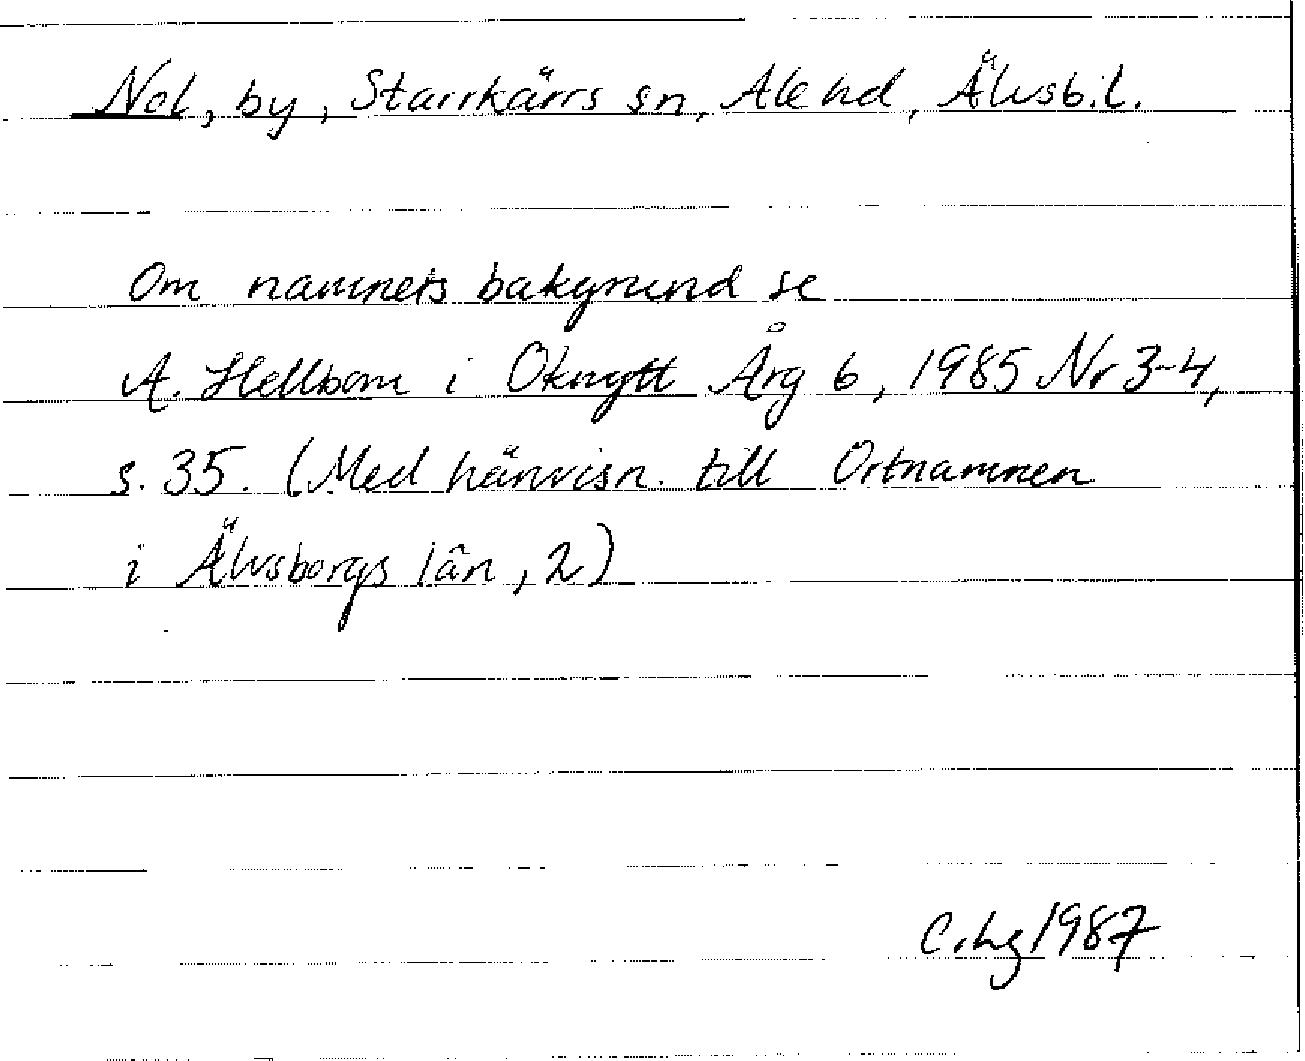 Nol, by, Starrkärrs sn, Ale hd, Älvsb.l.
Om namnets bakgrund se
A. Hellbom i Oknytt Årg 6, 1985 Nr 3-4,
s. 35. (Med hänvisn. till Ortnamnen
i Älvsborgs län, 2)
C.Lg 1987